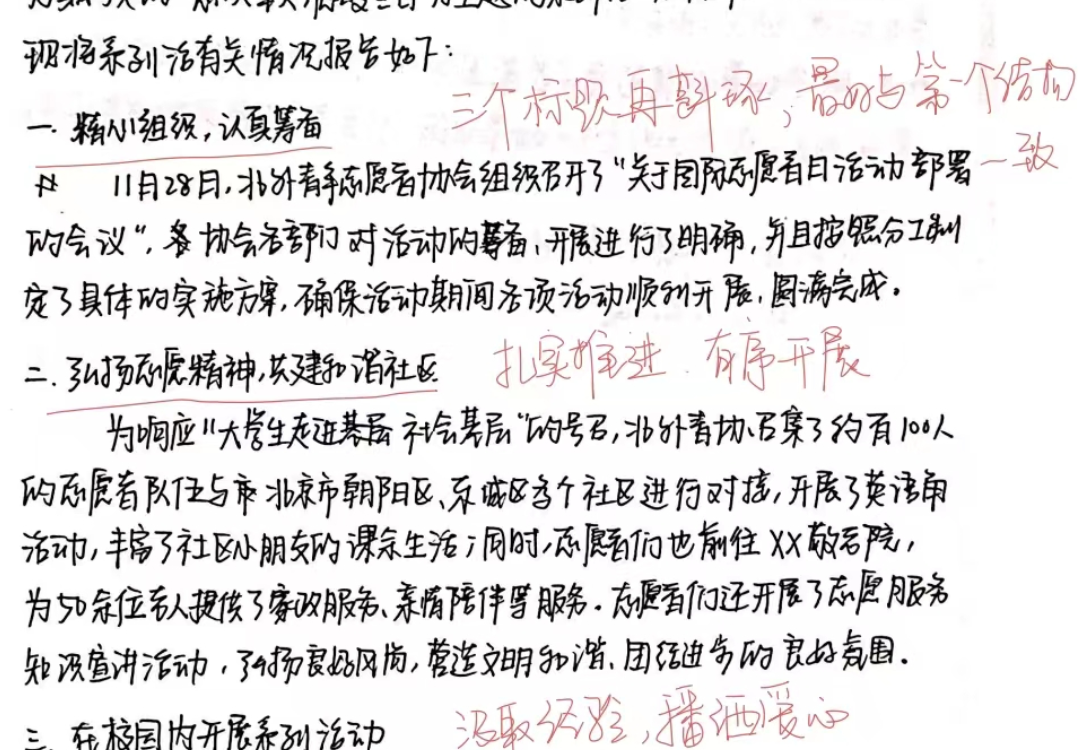 现将系列活有关情况报告如下：
三个标题再斟酌，最好与第一个结构
一致
一. 精心组织，认真筹备
11月28日，北外青年志愿者协会组织召开了“关于国际志愿者日活动部署
的会议”，协会各部门对活动的筹备、开展进行了明确，并且按照分工制
定了具体的实施方案，确保活动期间各项活动顺利开展，圆满完成。
二. 弘扬志愿精神，共建和谐社区
扎实推进 有序开展
为响应“大学生走进基层 社会基层”的号召，北外青协召集了约有100人
的志愿者队伍与市北京市朝阳区、东城区多个社区进行对接，开展了英语角
活动，丰富了社区小朋友的课余生活；同时，志愿者们也前往XX敬老院，
为50余位老人提供了家政服务、亲情陪伴等服务。志愿者们还开展了志愿服务
知识宣讲活动，弘扬良好风尚，营造文明和谐、团结进步的良好氛围。
三. 在校园内开展系列活动
汲取经验，播洒暖心